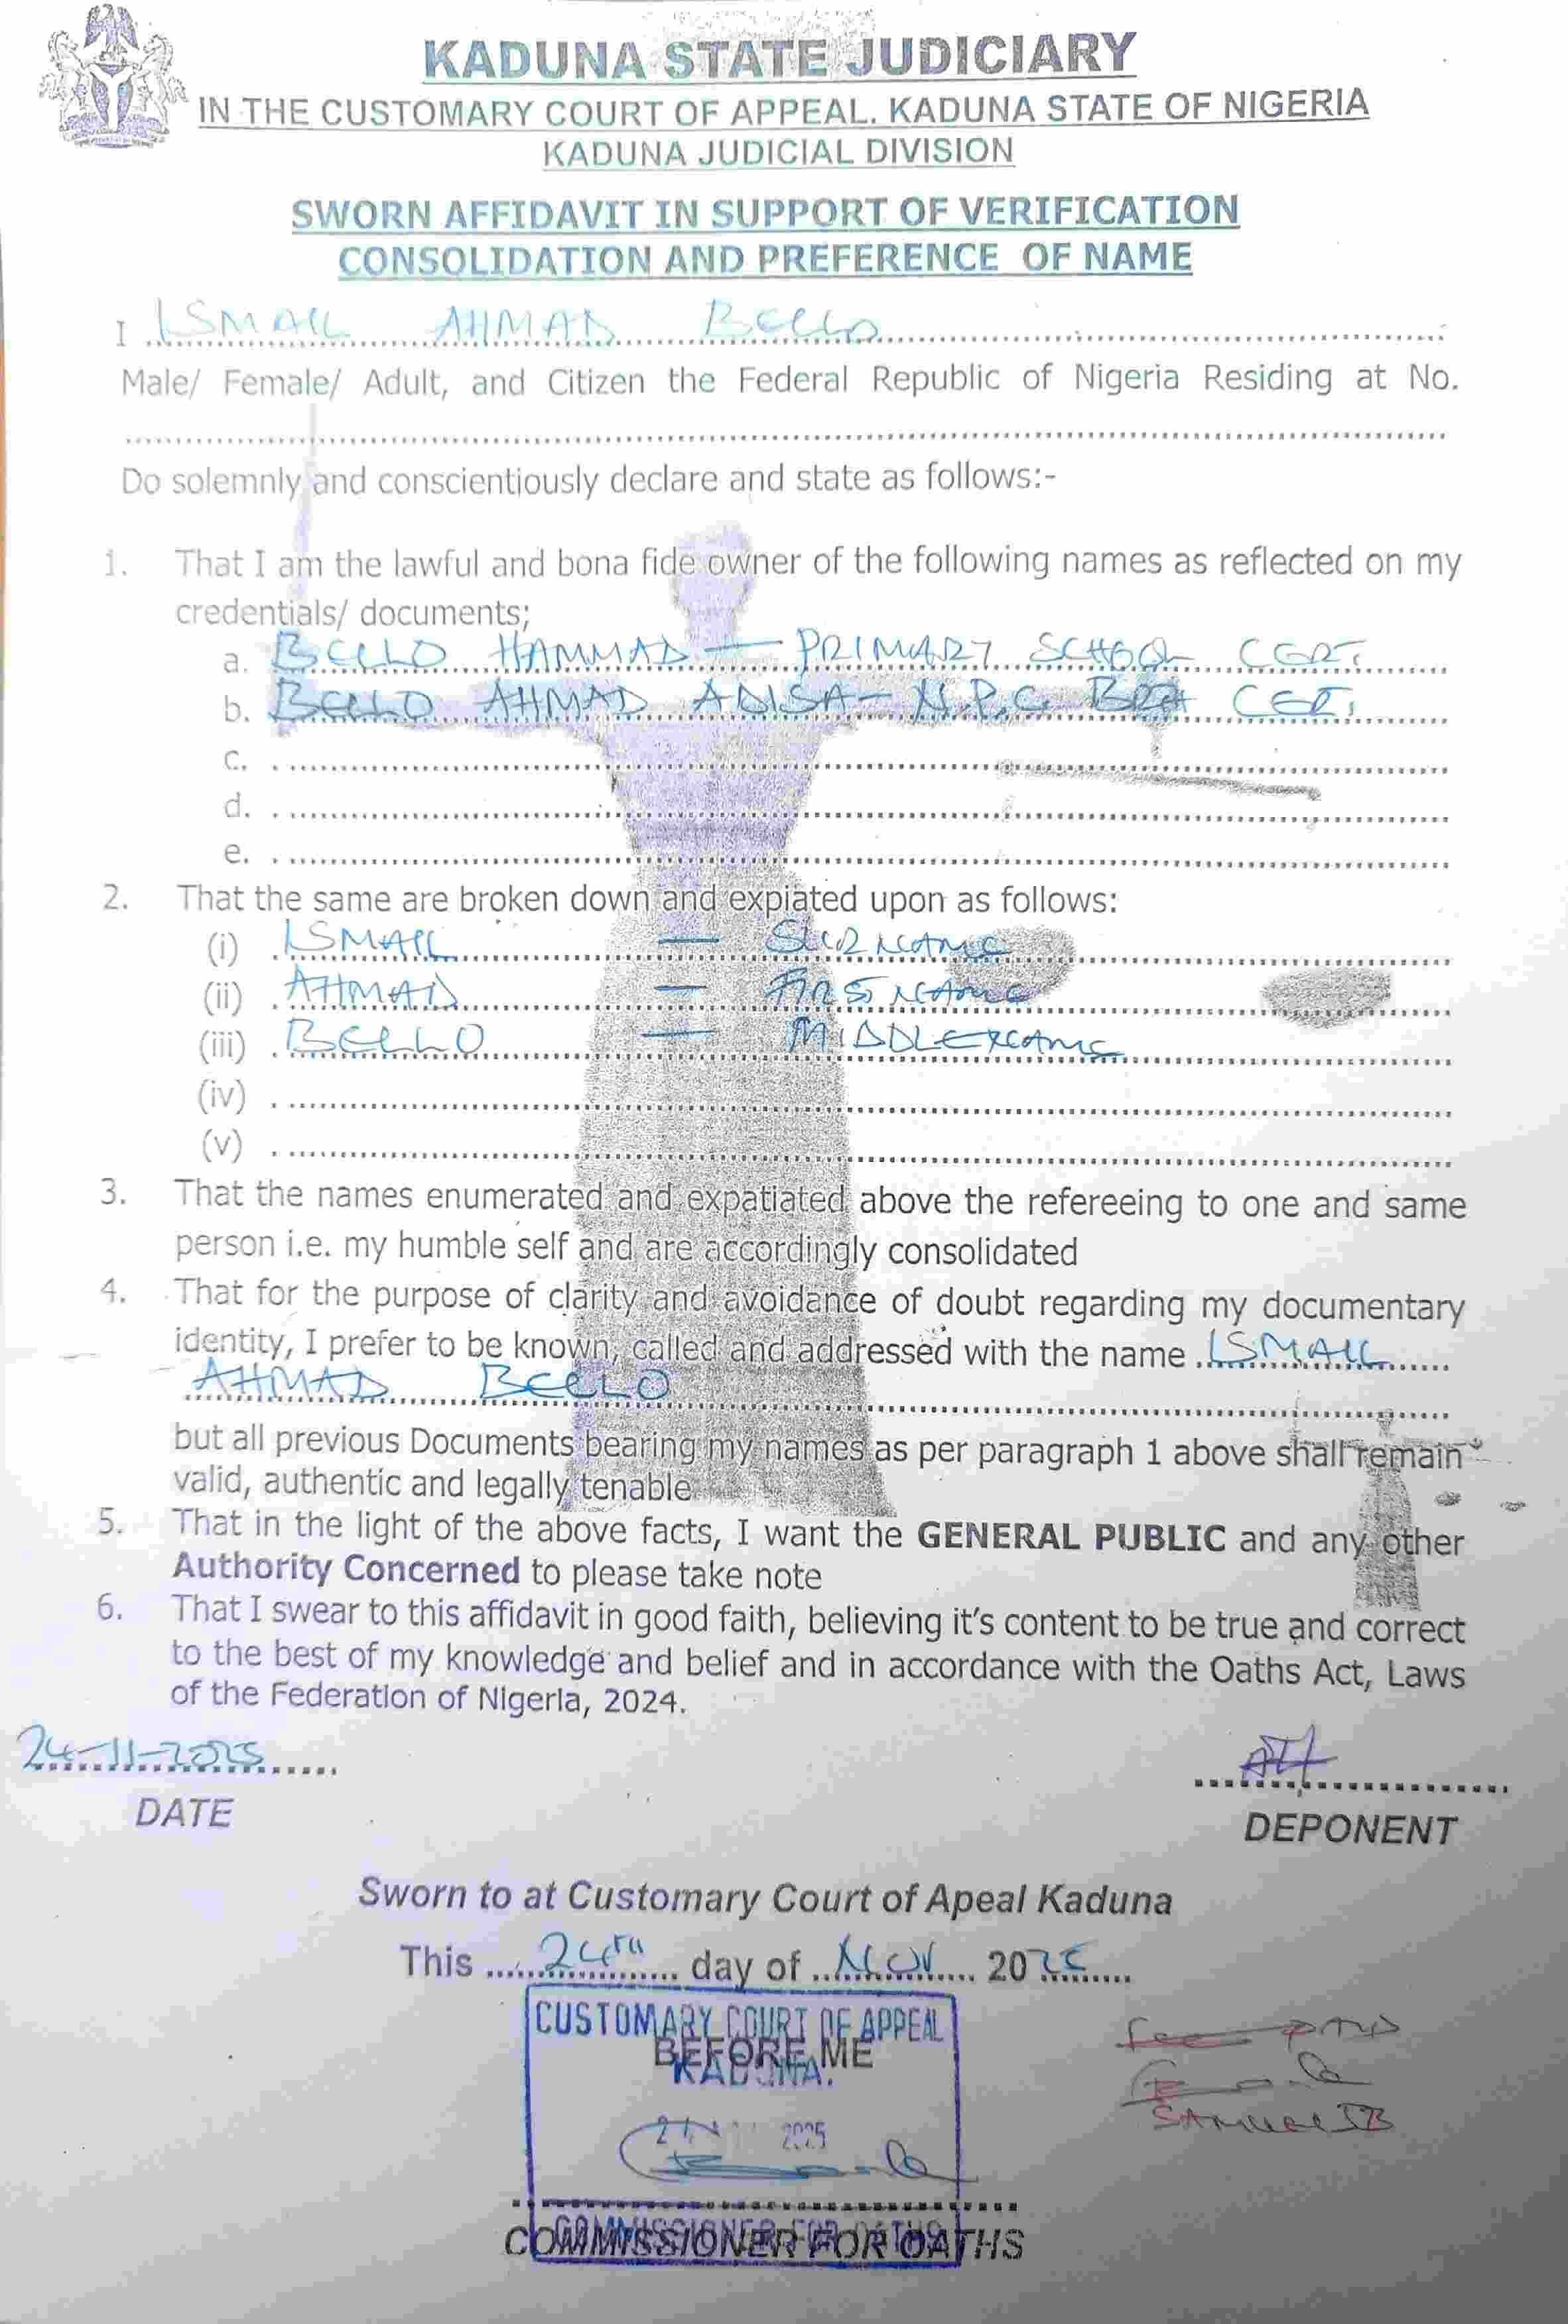 KADUNA STATE JUDICIARY
IN THE CUSTOMARY COURT OF APPEAL. KADUNA STATE OF NIGERIA
KADUNA JUDICIAL DIVISION
SWORN AFFIDAVIT IN SUPPORT OF VERIFICATION
CONSOLIDATION AND PREFERENCE OF NAME
I ISMAIL AHMAD BELLO
Male/ Female/ Adult, and Citizen the Federal Republic of Nigeria Residing at No.
Do solemnly and conscientiously declare and state as follows:-
1. That I am the lawful and bona fide owner of the following names as reflected on my
credentials/ documents;
a. BELLO HAMMAD — PRIMARY SCHOOL CERT.
b. BELLO AHMAD ADISA — N.P.C. CERT.
c.
d.
e.
2. That the same are broken down and expiated upon as follows:
(i) ISMAIL — SURNAME
(ii) AHMAD — FIRST NAME
(iii) BELLO — MIDDLENAME
(iv)
(v)
3. That the names enumerated and expatiated above the refereeing to one and same
person i.e. my humble self and are accordingly consolidated
4. That for the purpose of clarity and avoidance of doubt regarding my documentary
identity, I prefer to be known, called and addressed with the name ISMAIL
AHMAD BELLO
but all previous Documents bearing my names as per paragraph 1 above shall remain
valid, authentic and legally tenable
5. That in the light of the above facts, I want the GENERAL PUBLIC and any other
Authority Concerned to please take note
6. That I swear to this affidavit in good faith, believing it's content to be true and correct
to the best of my knowledge and belief and in accordance with the Oaths Act, Laws
of the Federation of Nigeria, 2024.
24-11-2025
DATE
DEPONENT
Sworn to at Customary Court of Apeal Kaduna
This 24TH day of NOV 2025
CUSTOMARY COURT OF APPEAL
BEFORE ME
KADUNA.
2025
Fee PAID
SAMUEL IB
COMMISSIONER FOR OATHS
COMMISSIONER FOR OATHS